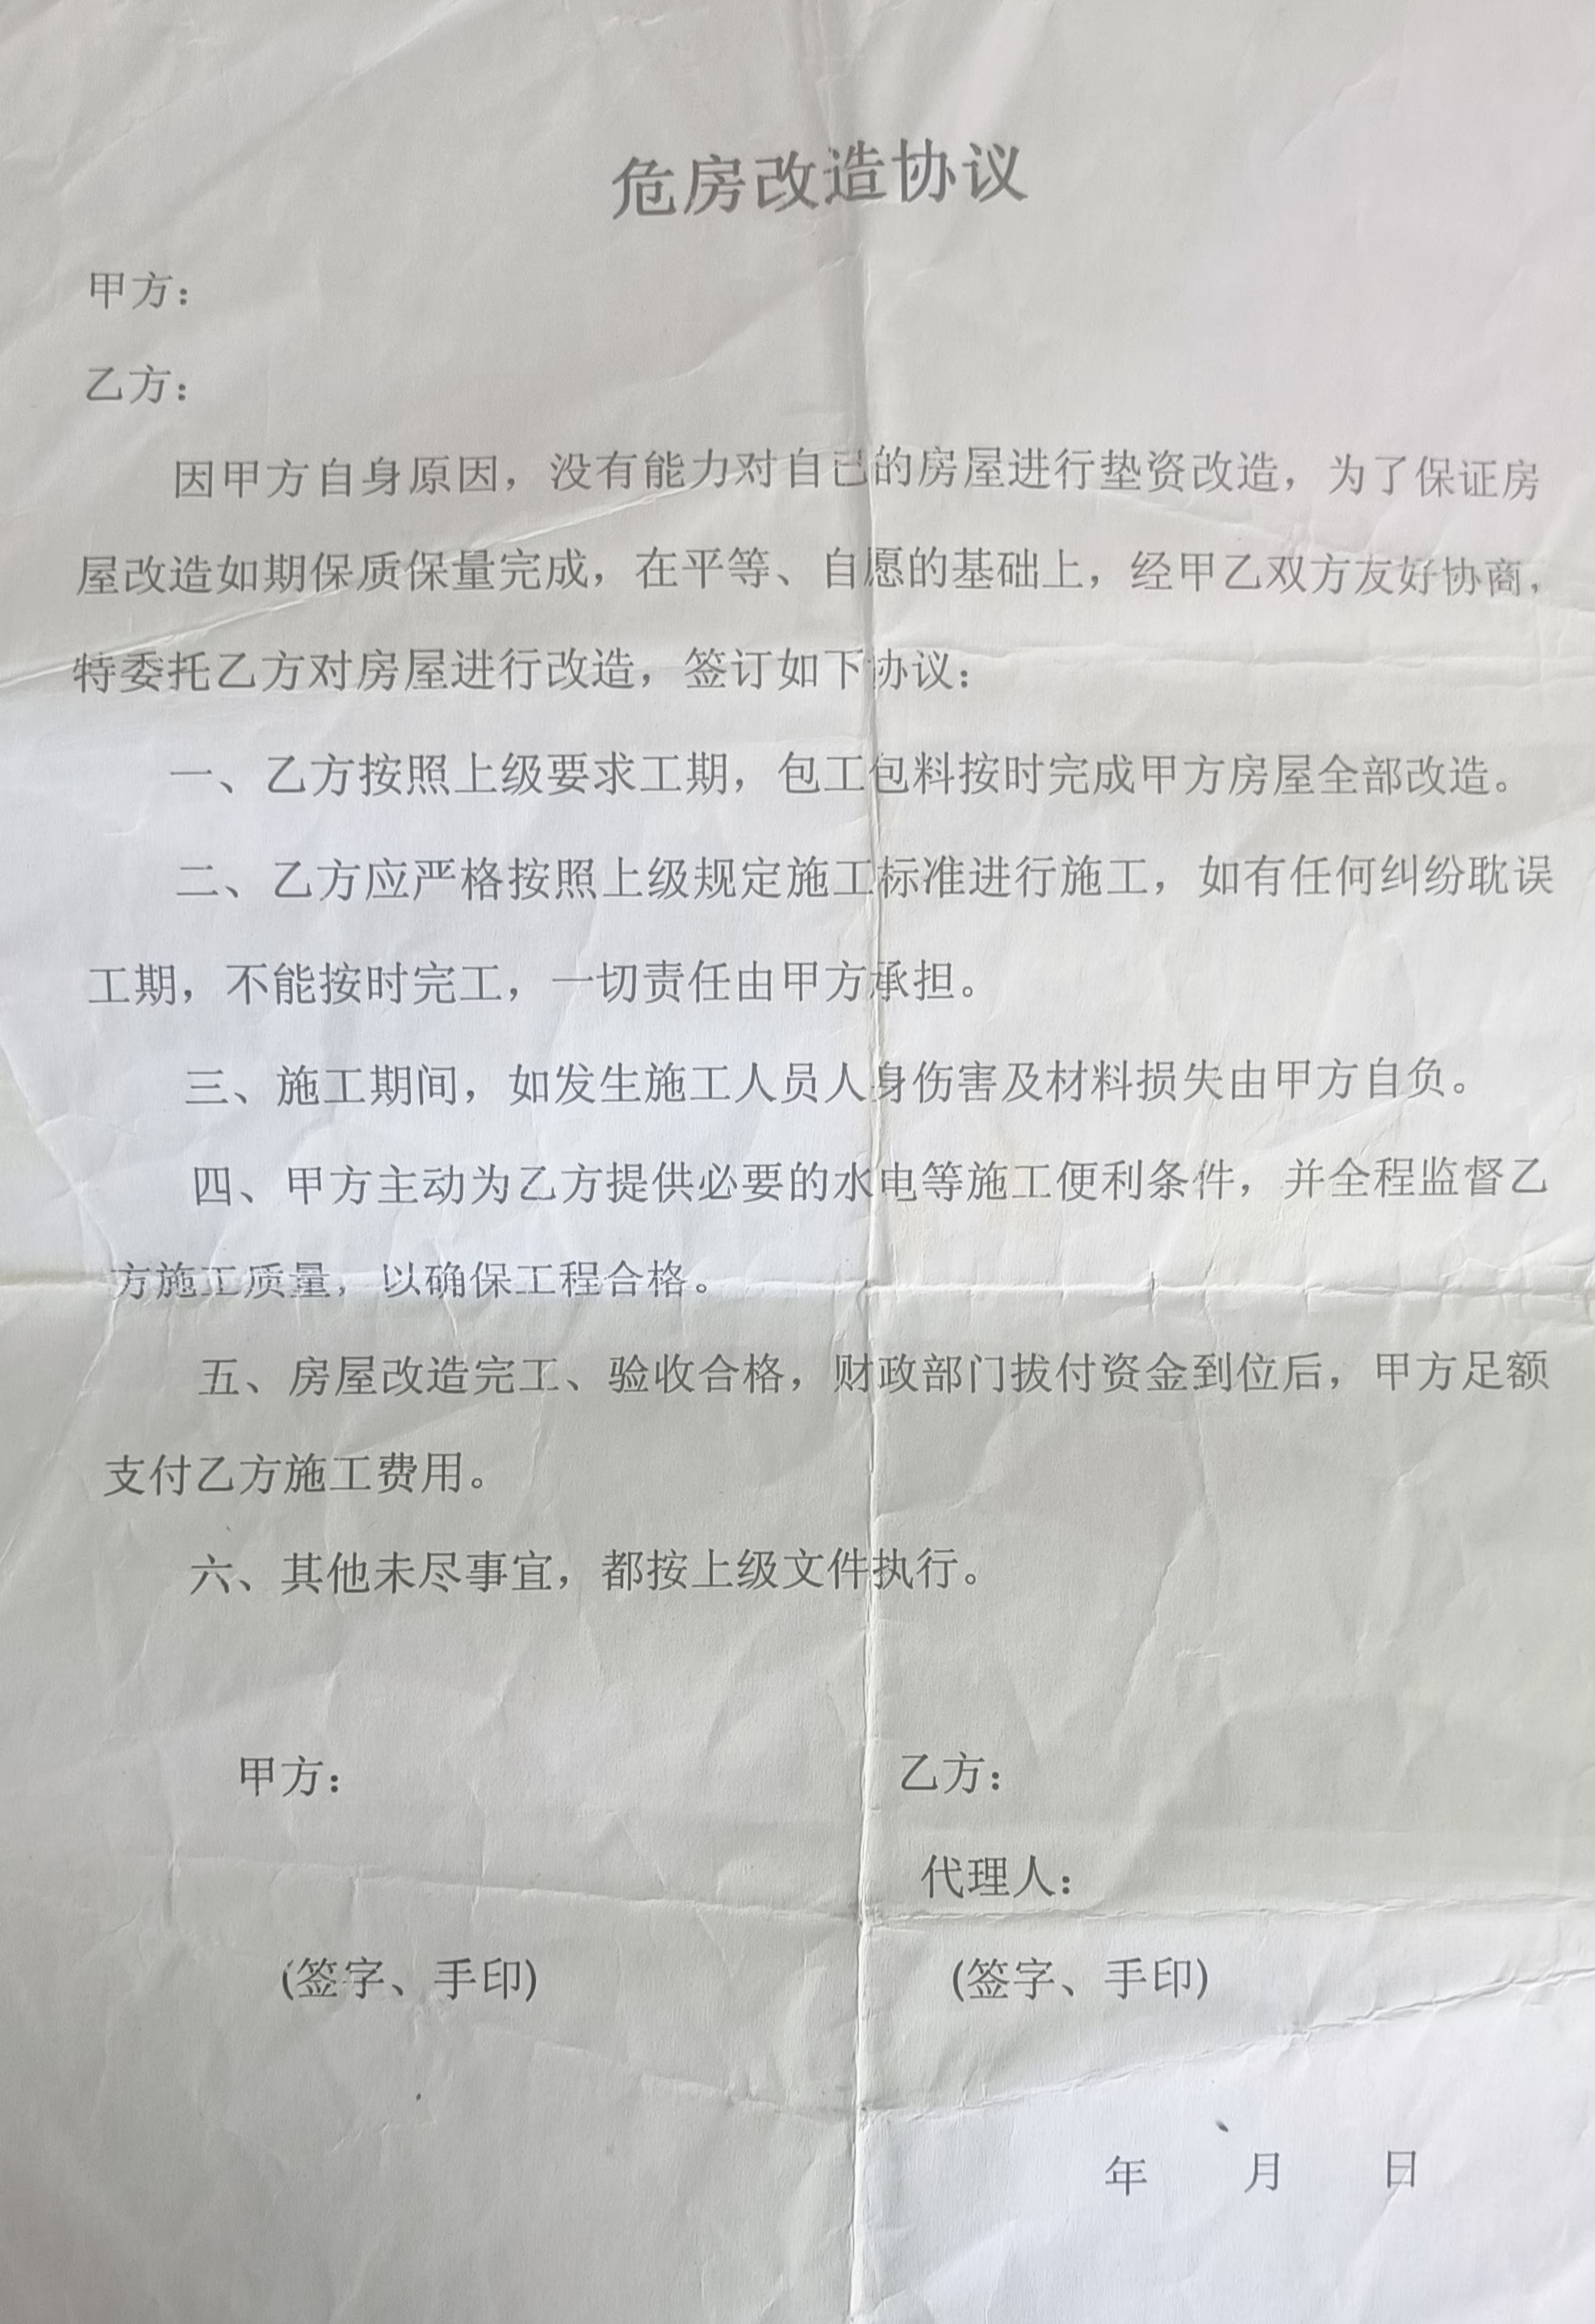 危房改造协议
甲方：
乙方：
因甲方自身原因，没有能力对自己的房屋进行垫资改造，为了保证房
屋改造如期保质保量完成，在平等、自愿的基础上，经甲乙双方友好协商，
特委托乙方对房屋进行改造，签订如下协议：
一、乙方按照上级要求工期，包工包料按时完成甲方房屋全部改造。
二、乙方应严格按照上级规定施工标准进行施工，如有任何纠纷耽误
工期，不能按时完工，一切责任由甲方承担。
三、施工期间，如发生施工人员人身伤害及材料损失由甲方自负。
四、甲方主动为乙方提供必要的水电等施工便利条件，并全程监督乙
方施工质量，以确保工程合格。
五、房屋改造完工、验收合格，财政部门拔付资金到位后，甲方足额
支付乙方施工费用。
六、其他未尽事宜，都按上级文件执行。
甲方： 乙方：
代理人：
(签字、手印) (签字、手印)
年 月 日